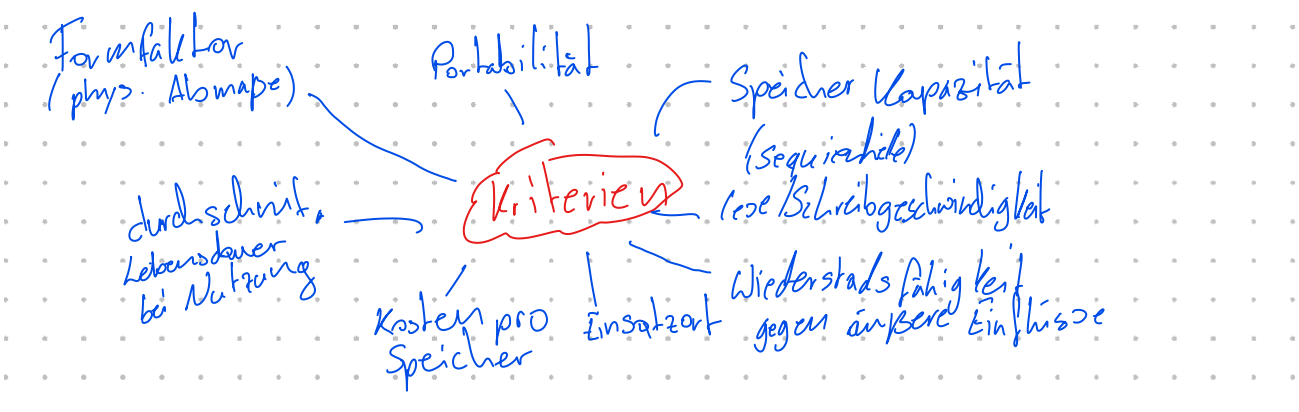 Formfaktor
(phys. Abmaße)
Portabilität
Speicher Kapazität
(sequienhile)
lese/Schreibgeschwindigkeit
Kriterien
durchschnit.
Lebensdauer
bei Nutzung
Kosten pro
Speicher
Einsatzort
Wiederstadsfähigkeit
gegen äußere Einflüsse